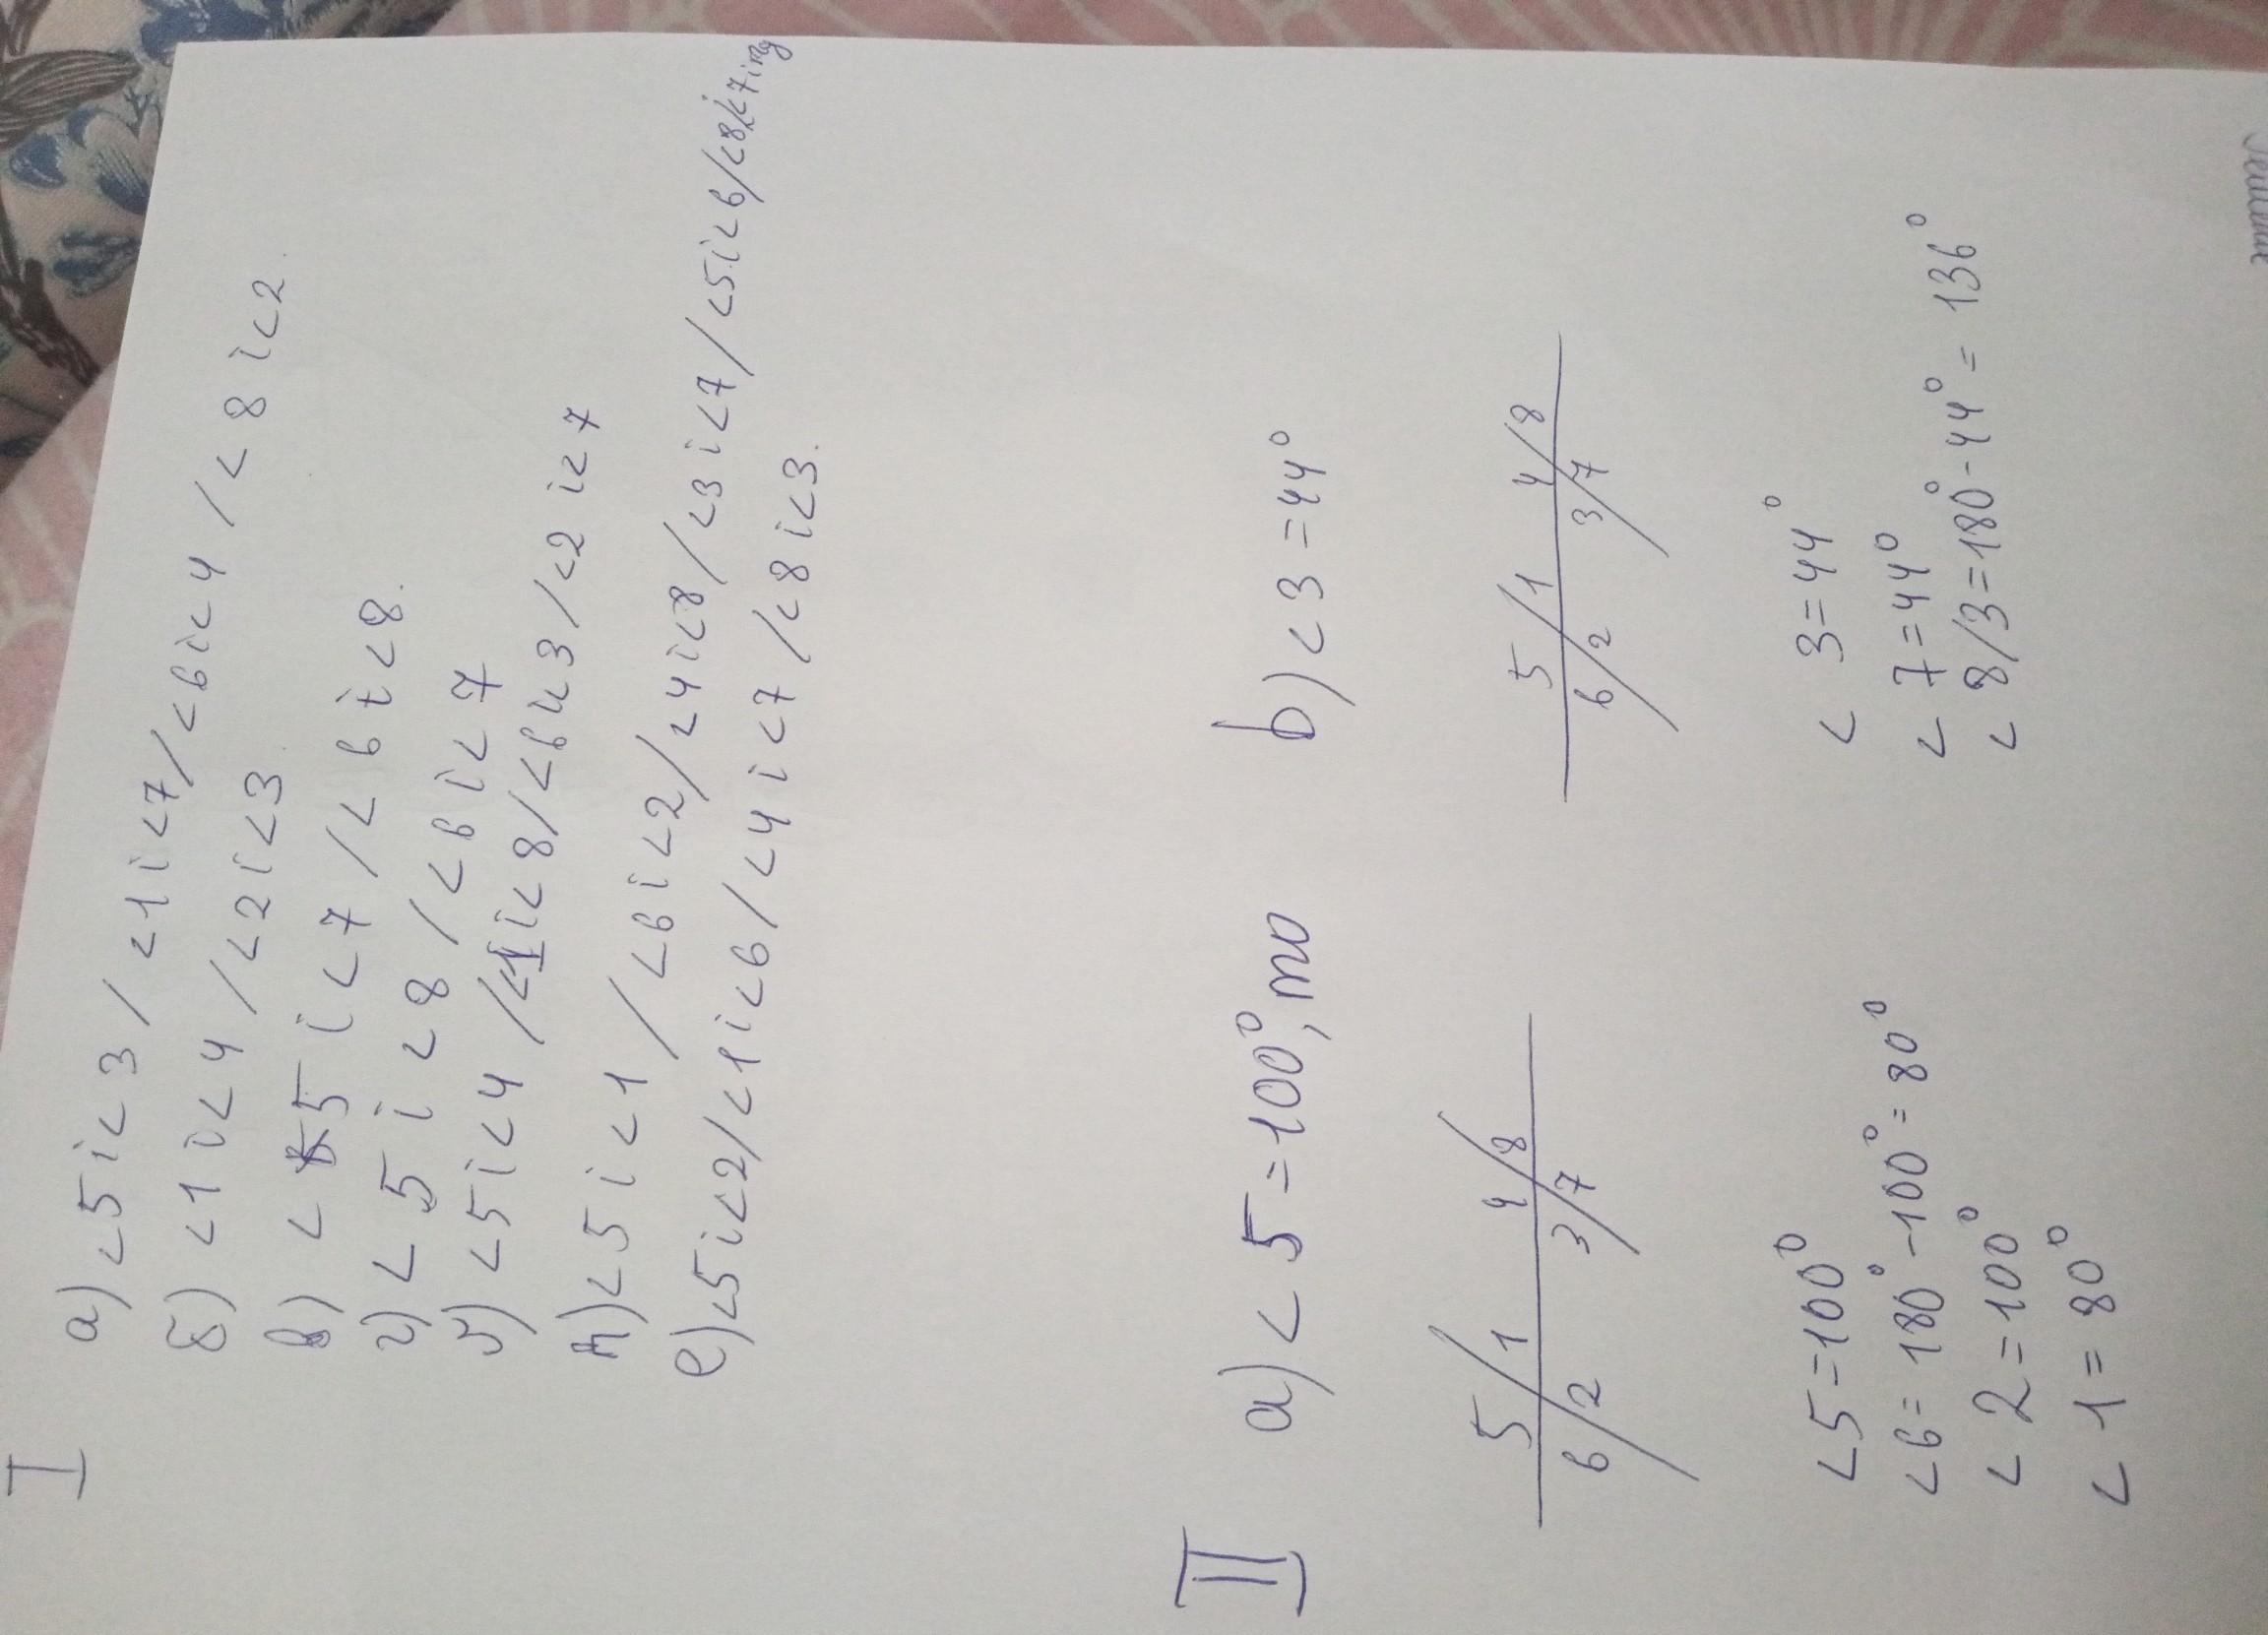 I
а) <5 і <3 / <1 і <7 / <6 і <4 / <8 і <2.
б) <1 і <4 / <2 і <3.
в) < 5 і <7 / <6 і <8.
г) <5 і <8 / <6 і <7
<5 і <4 / <1 і <8 / <6 и <3 / <2 і <7
<5 і <1 / <6 і <2 / <4 і <8 / <3 і <7 / <5 і <6 / <8 і <7 і тд
е) <5 і <2 / <1 і <6 / <4 і <7 / <8 і <3.
II
а) <5 = 100°, то
b) <3 = 44°
5 / 1 4 / 8
6 / 2 3 / 7
5 / 1 4 / 8
6 / 2 3 / 7
<5 = 100°
<6 = 180° - 100° = 80°
<2 = 100°
<1 = 80°
<3 = 44°
<7 = 44°
<8/3 = 180° - 44° = 136°